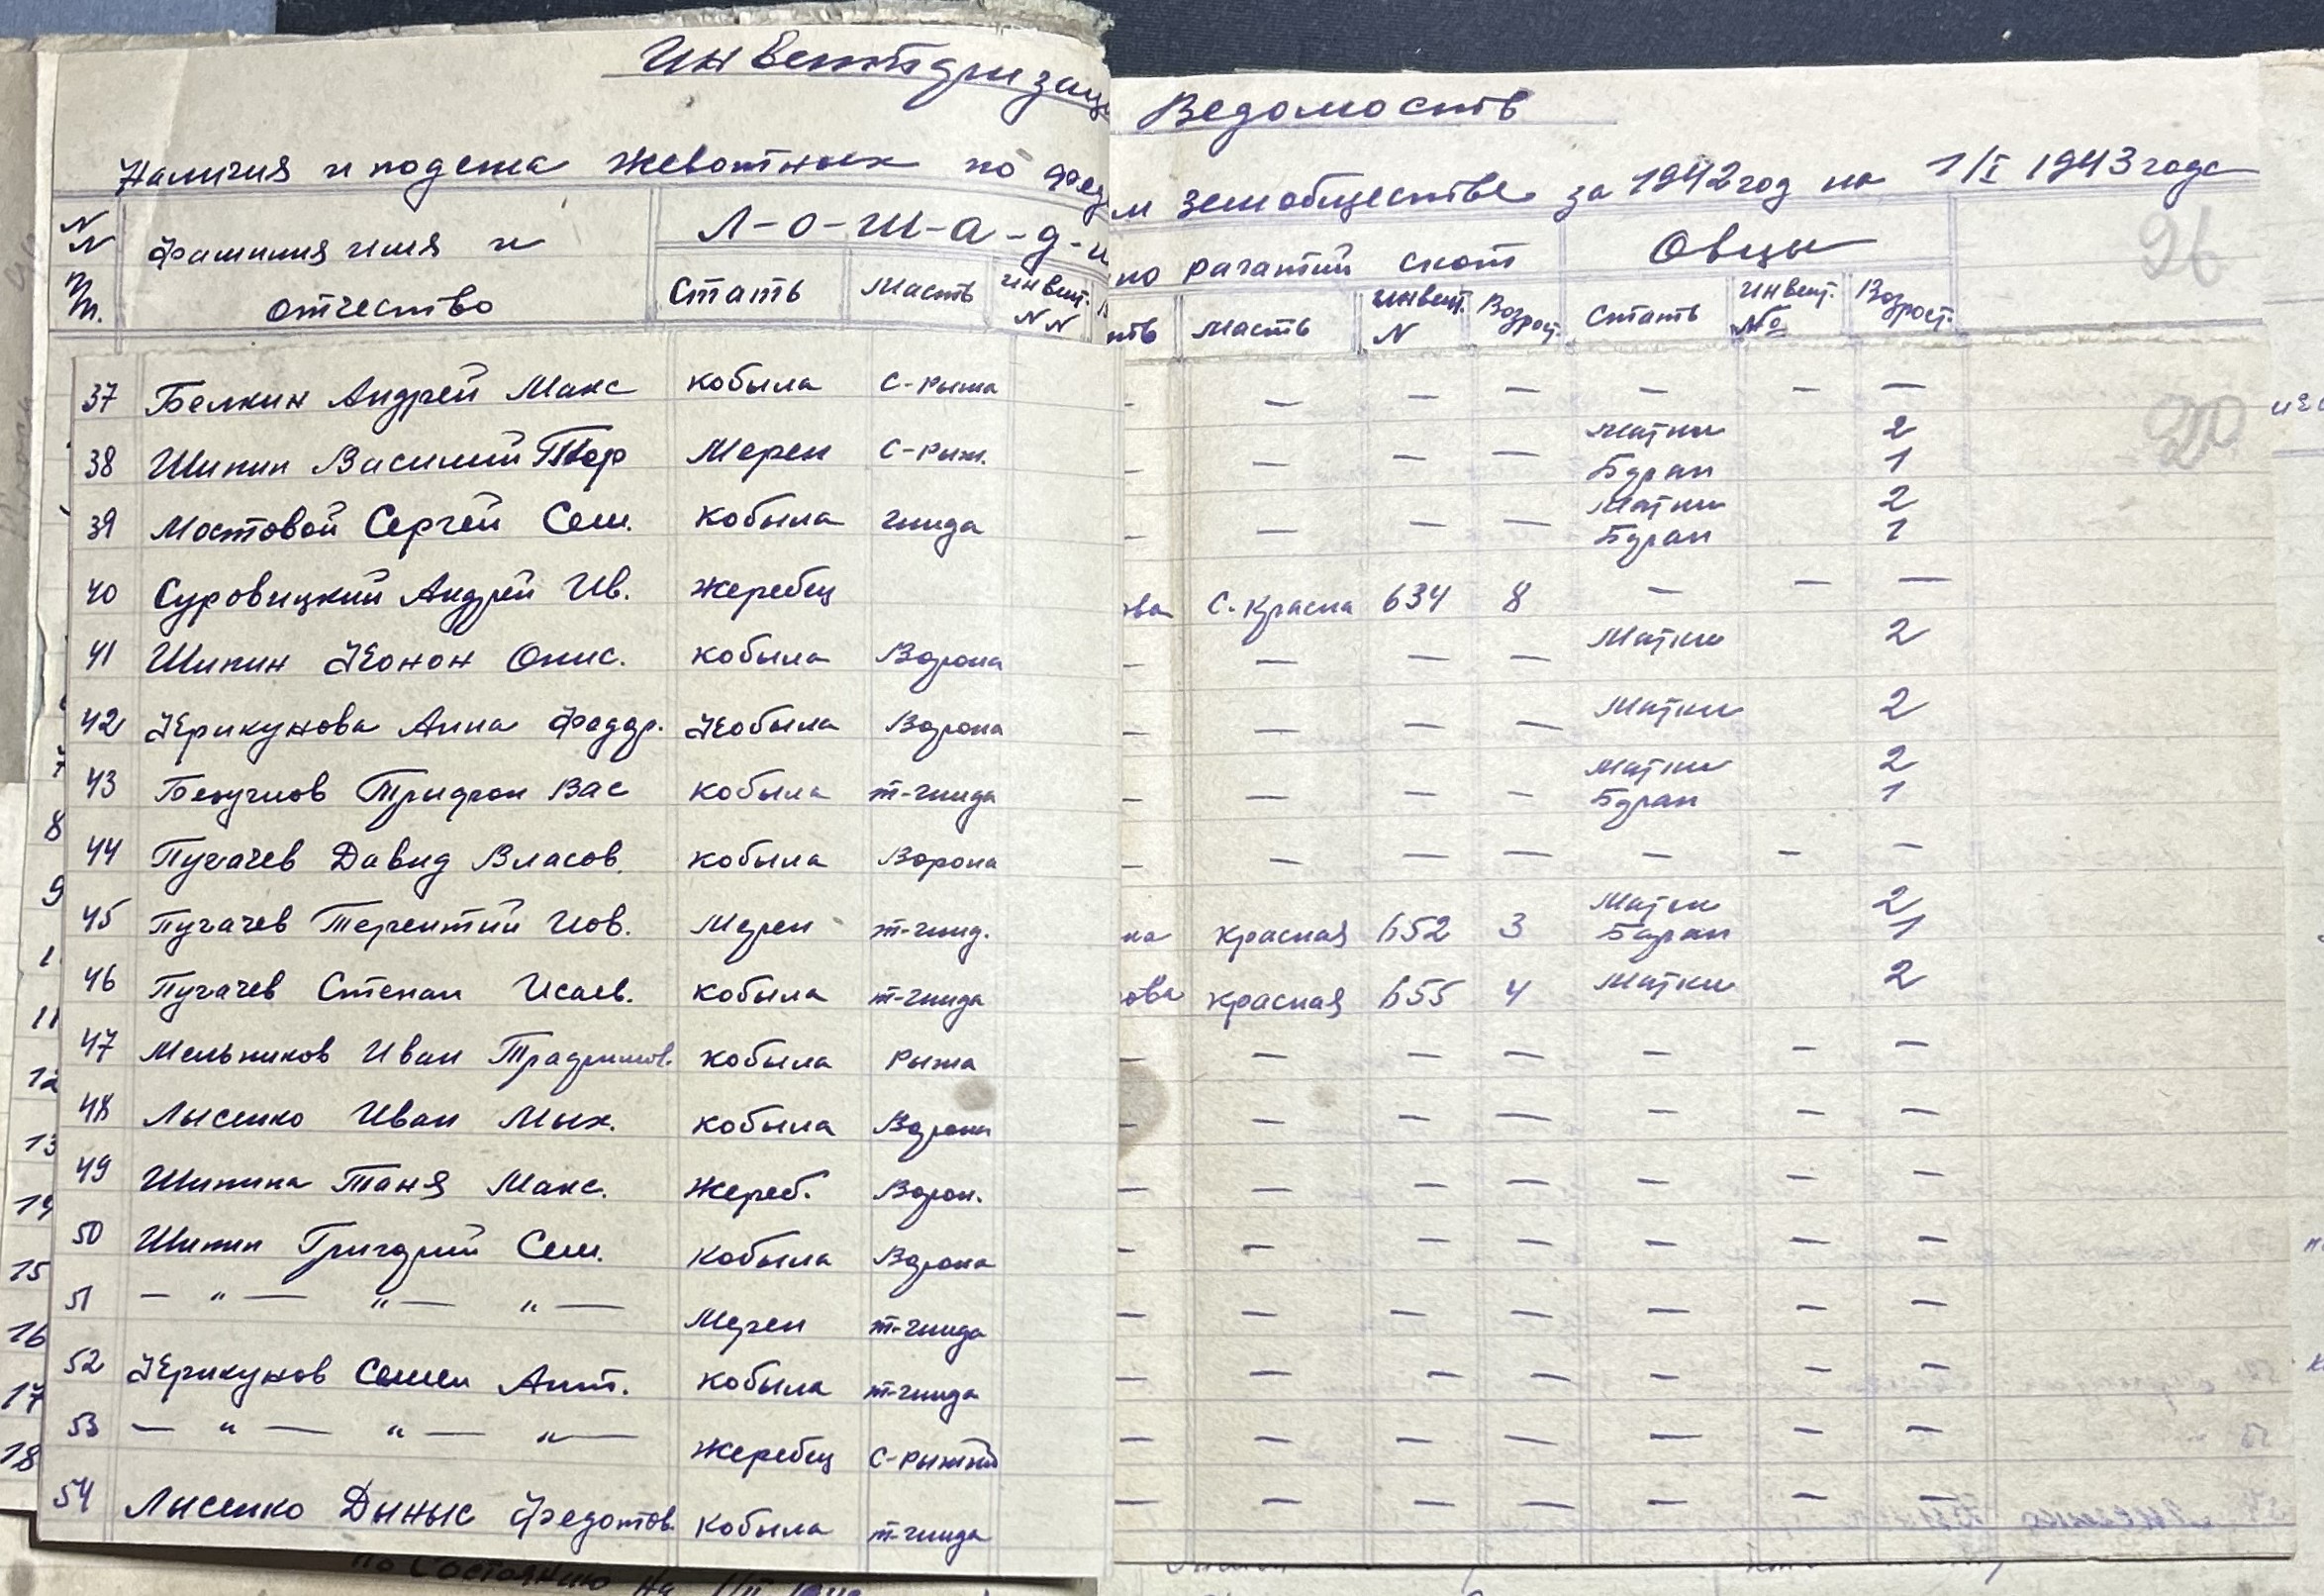 Инвентаризац
Ведомость
Наличия и подсма животных по Фед
м земобществе за 1942 год на 1/I 1943 года
NN пп. Фамилия имя и отчество Л-о-ш-а-д-и
Стать Масть Инвент. NN
по рагатий скот Овцы 96
ть Масть Инвент. N Возрост. Стать Инвент. № Возрост.
37 Белкин Андрей Макс кобыла С-рыжа — — — — — — —
38 Шипин Василий Мерен С-рыж. — — — — Матки 2
Баран 1
39 Мостовой Сергей Сем. кобыла гнида — — — — Матки 2
Баран 1
40 Суровицкий Андрей Ив. жеребец ова С-красна 634 8 — — —
41 Шипин Конон Онис. кобыла Ворона — — — — Матки 2
42 Крикунова Анна Федор. Кобыла Ворона — — — — Матки 2
43 Вас кобыла т-гнида — — — — Матки 2
Баран 1
44 Пугачев Давид Власов. кобыла Ворона — — — — — — —
45 Пугачев Терентий Иов. Мерен т-гнид. на красная 652 3 Матки 2
Баран 1
46 Пугачев Степан Исаев. кобыла т-гнида ова красная 655 4 Матки 2
47 Мельников Иван кобыла рыжа — — — — — — —
48 Лысенко Иван Мих. кобыла Ворона — — — — — — —
49 Шипина Таня Макс. жереб. Ворон. — — — — — — —
50 Шипин Григорий Сем. кобыла Ворона — — — — — — —
51 — " — " — " — Мерен т-гнида — — — — — — —
52 Крикунов Семен Ант. кобыла т-гнида — — — — — — —
53 — " — " — " — жеребец С-рыжий — — — — — — —
54 Лысенко Дыныс Федотов. кобыла т-гнида — — — — — — —
8
9
11
12
13
14
15
16
17
18
по состоянию на